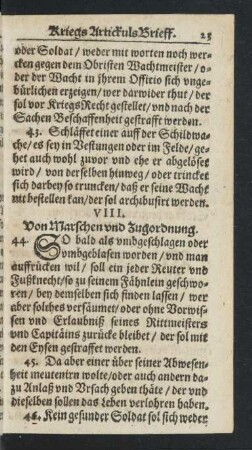 Kriegs Artickuls Brieff. 23
oder Soldat / weder mit worten noch wer-
cken gegen dem Obristen Wachtmeister / o-
der der Wacht in jhrem Officio sich vnge-
bürlichen erzeigen / wer darwider thut / der
sol vor KriegsRecht gestellet / vnd nach der
Sachen Beschaffenheit gestrafft werden.
43. Schläffet einer auff der Schildwa-
che / es sey in Vestungen oder im Felde / ge-
het auch wohl zuvor vnd ehe er abgelöset
wird / von derselben hinweg / oder trincket
sich darbey so truncken / daß er seine Wacht
nit bestellen kan / der sol archibusirt werden.
VIII.
Von Marschen vnd Zugordnung.
44. SO bald als vmbgeschlagen oder
vmbgeblasen worden / vnd man
auffrücken wil / soll ein jeder Reuter vnd
Fußknecht / so zu seinem Fähnlein geschwo-
ren / bey demselben sich finden lassen / wer
aber solches versäumet / oder ohne Vorwis-
sen vnd Erlaubniß seines Rittmeisters
vnd Capitäins zurücke bleibet / der sol mit
den Eysen gestraffet werden.
45. Da aber einer über seiner Abwesen-
heit meutenirn wolte / oder auch andern da-
zu Anlaß vnd Vrsach geben thäte / der vnd
dieselben sollen das Leben verlohren haben.
46. Kein gesunder Soldat sol sich weder